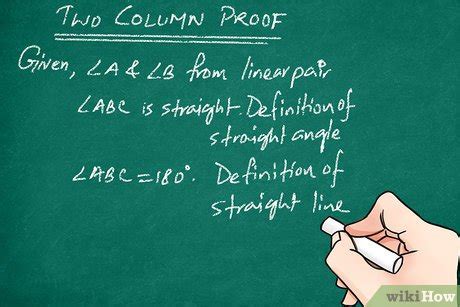 TWO COLUMN PROOF
Given, ∠A & ∠B from linear pair
∠ABC is straight. Definition of
straight angle
∠ABC = 180°. Definition of
straight line
wikiHow